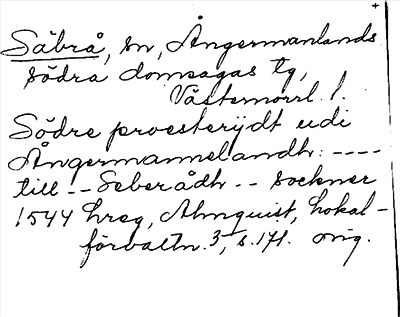 Säbrå, sn, Ångermanlands
södra domsagas tg,
Västernorrl. l.
Södre proesterijdt udi
Ångermannelandh: ----
till -- Seberådh -- sockner
1544 hreg, Almquist, Lokal-
förvaltn. 3, s. 171. orig.